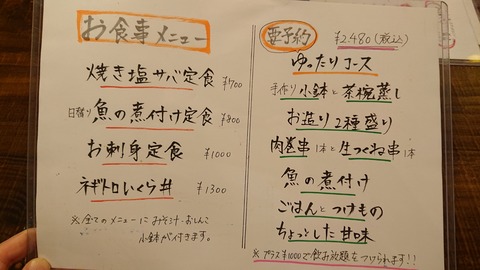 お食事メニュー
焼き塩サバ定食 ¥700
日替り 魚の煮付け定食 ¥800
お刺身定食 ¥1000
ネギトロいくら丼 ¥1300
※全てのメニューにみそ汁・おしんこ
小鉢が付きます。
要予約 ¥2480(税込)
ゆったりコース
手作り小鉢と茶碗蒸し
お造り2種盛り
肉巻串1本と生つくね串1本
魚の煮付け
ごはんとつけもの
ちょっとした甘味
※プラス¥1000で飲み放題をつけられます!!